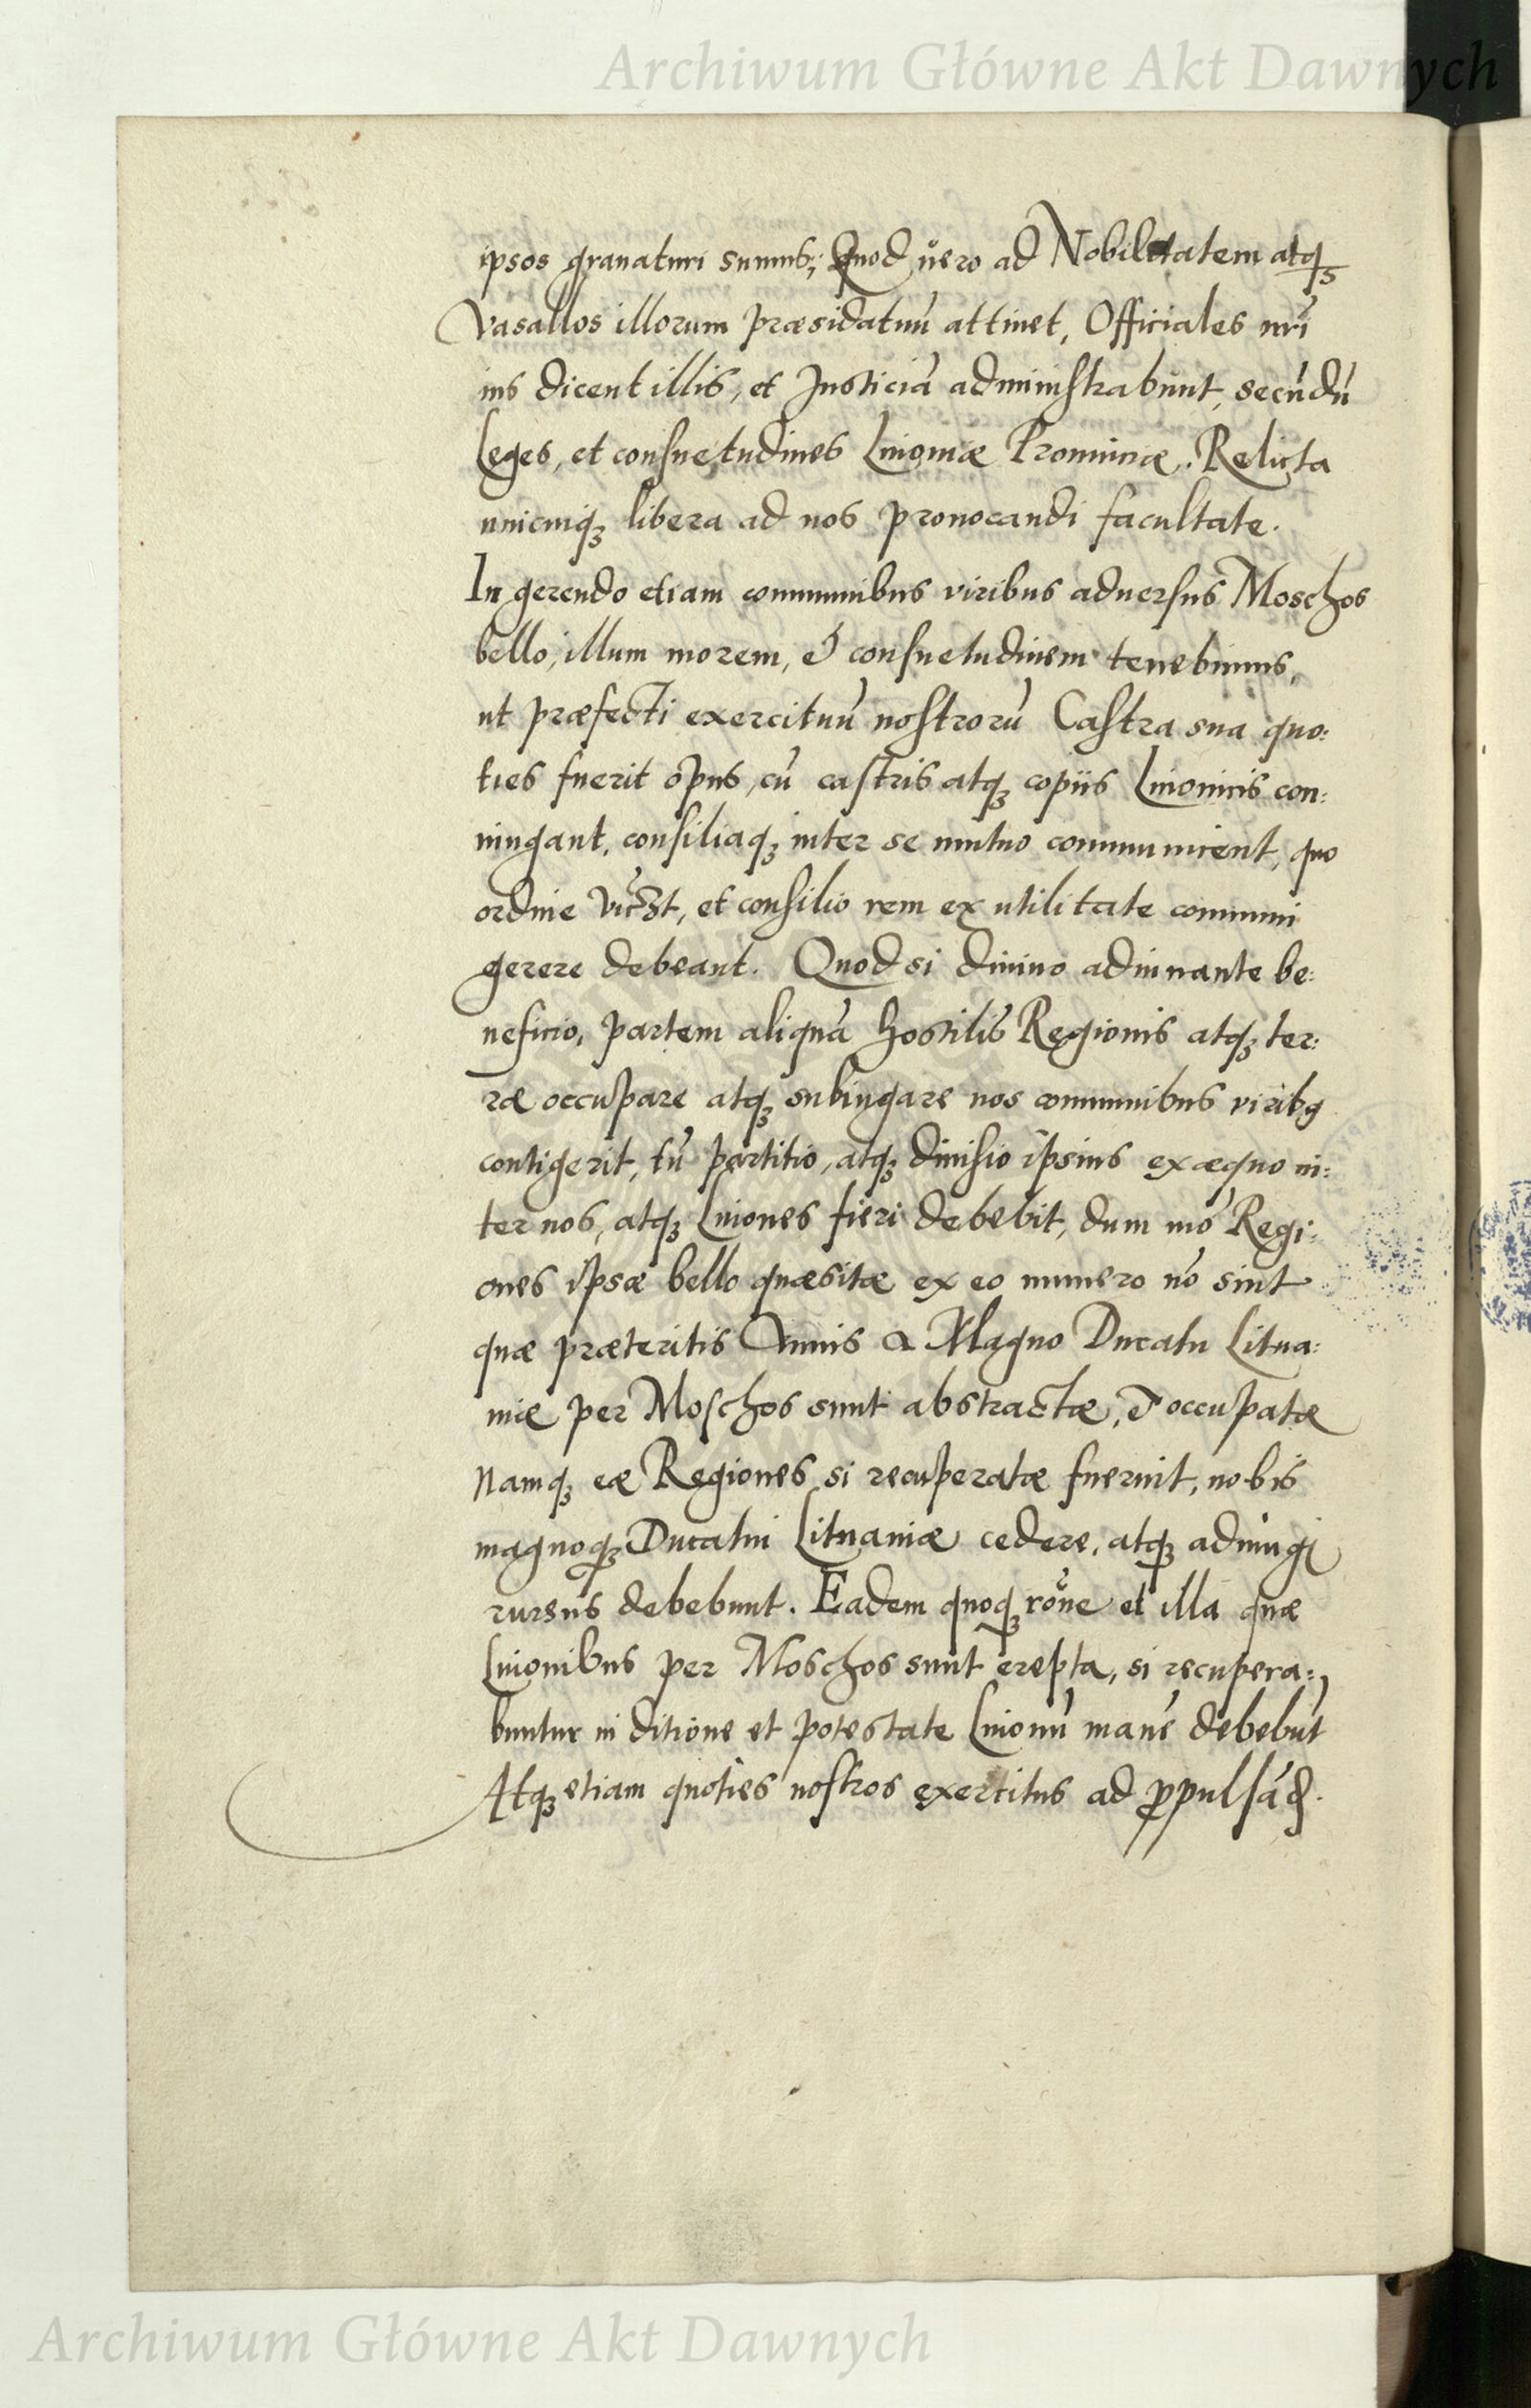 Archiwum Główne Akt Dawnych
ipsos grauaturi sumus; Quod uero ad Nobilitatem atq3
Vasallos illorum præsidatuū attinet, Officiales nrī
ius dicent illis, et Justiciā administrabunt, secūdū
Leges, et consuetudines Liuoniæ Prouinciæ. Relicta
unicuiq3 libera ad nos prouocandi facultate.
In gerendo etiam communibus viribus aduersus Moschos
bello, illum morem, & consuetudinem tenebimus,
ut præfecti exercituū nostrorū Castra sua quo:
ties fuerit opus, cū castris atq3 copiis Liuonicis con:
iungant, consiliaq3 inter se mutuo communicent, quo
ordine et consilio rem ex utilitate communi
gerere debeant. Quod si diuino adiuuante be:
neficio, partem aliquā hostilis Regionis atq3 ter:
ræ occupare atq3 subiugare nos communibus viribꝯ
contigerit, tū partitio, atq3 diuisio ipsius ex æquo in:
ter nos, atq3 Liuones fieri debebit, dum mō Regi:
ones ipsæ bello quæsitæ ex eo numero nō sint
quæ præteritis Annis a Magno Ducatu Litua:
niæ per Moschos sunt abstractæ, & occupatæ
Namq3 eæ Regiones si recuperatæ fuerint, nobis
magnoq3 Ducatui Lituaniæ cedere, atq3 adiungi
rursus debebunt. Eadem quoq3 rōne et illa quæ
Liuonibus per Moschos sunt erepta, si recupera:
buntur in ditione et potestate Liuonū manē debebūt
Atq3 etiam quoties nostros exercitus ad ꝓpulsād.
Archiwum Główne Akt Dawnych